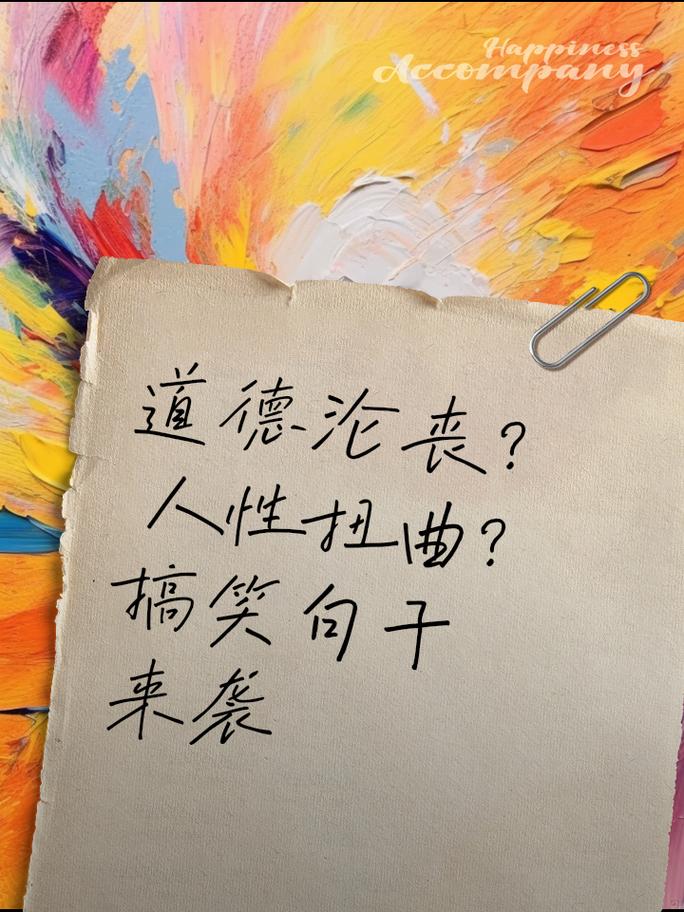 Happiness
Accompany
道德沦丧?
人性扭曲?
搞笑句子
来袭